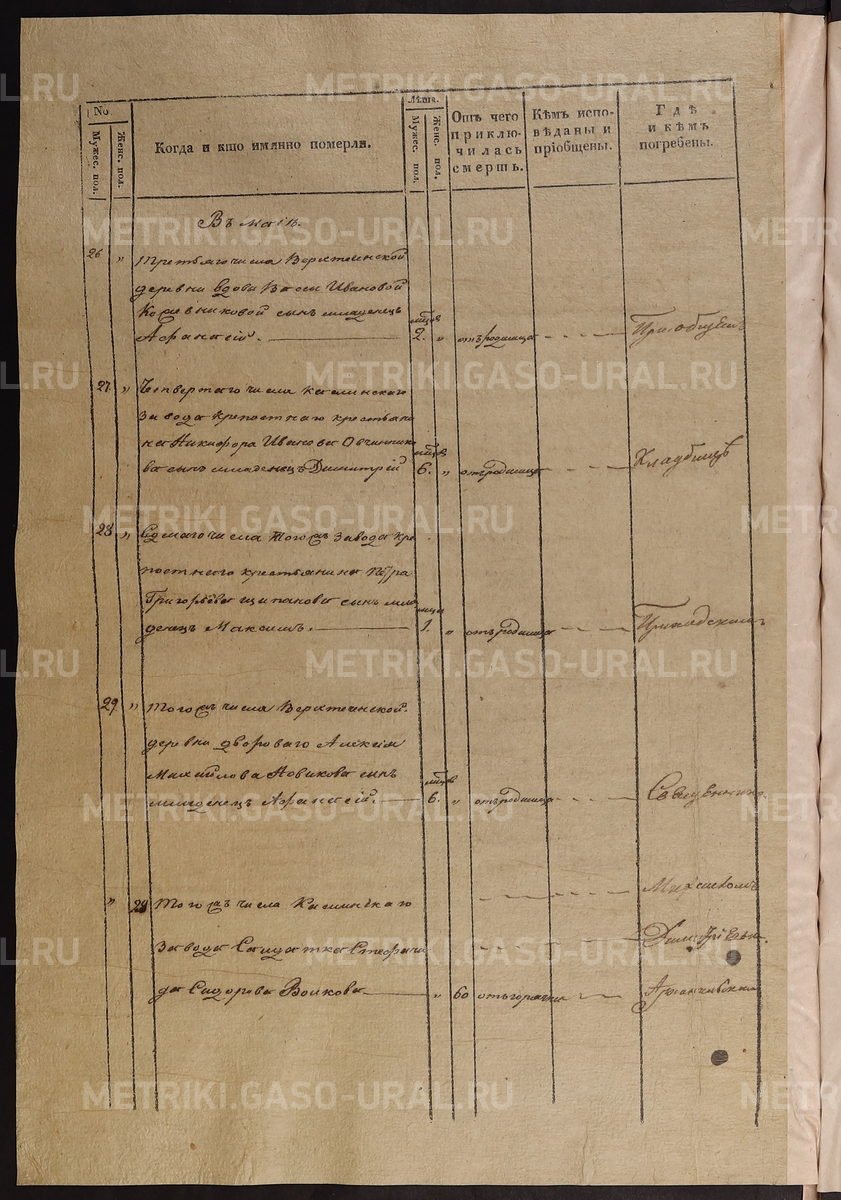 METRIKI.GASO-URAL.RU
№
Мужес. пол.
Женс. пол.
Когда и кто имянно померли.
Лѣта.
Мужес. пол.
Женс. пол.
Отъ чего
приклю-
чилась
смерть.
Кѣмъ испо-
вѣданы и
пріобщены.
Гдѣ
и кѣмъ
погребены.
Въ маіѣ.
26 " Третьяго числа Верхтеинской
деревни вдовы Васы Ивановой
Кожевниковой сынъ младенецъ
Афанасій. 2. " отъ родимца При общемъ
27 " Четвертаго числа Каслинскаго
завода крепостнаго крестьяни
на Никифора Иванова Овчиннико
ва сынъ младенецъ Димитрій 6. " отъ родимца Кладбищѣ
28 " Сдмаго числа того жъ завода кре
постнаго крестьянина Петра
Григорьева Щипанова сынъ мла
денецъ Максимъ. 1. " отъ родимца Приходскимъ
29 " Того жъ числа Верхтечинской
деревни двороваго Алексѣя
Михайлова Новикова сынъ
младенецъ Афанасій. 6. " отъ родимца Священникомъ
" 29 Того жъ числа Каслинскаго Михаиломъ
завода Салдатка Стефани Димитріевым.
да Сидорова Волкова " 60 отъ горячки